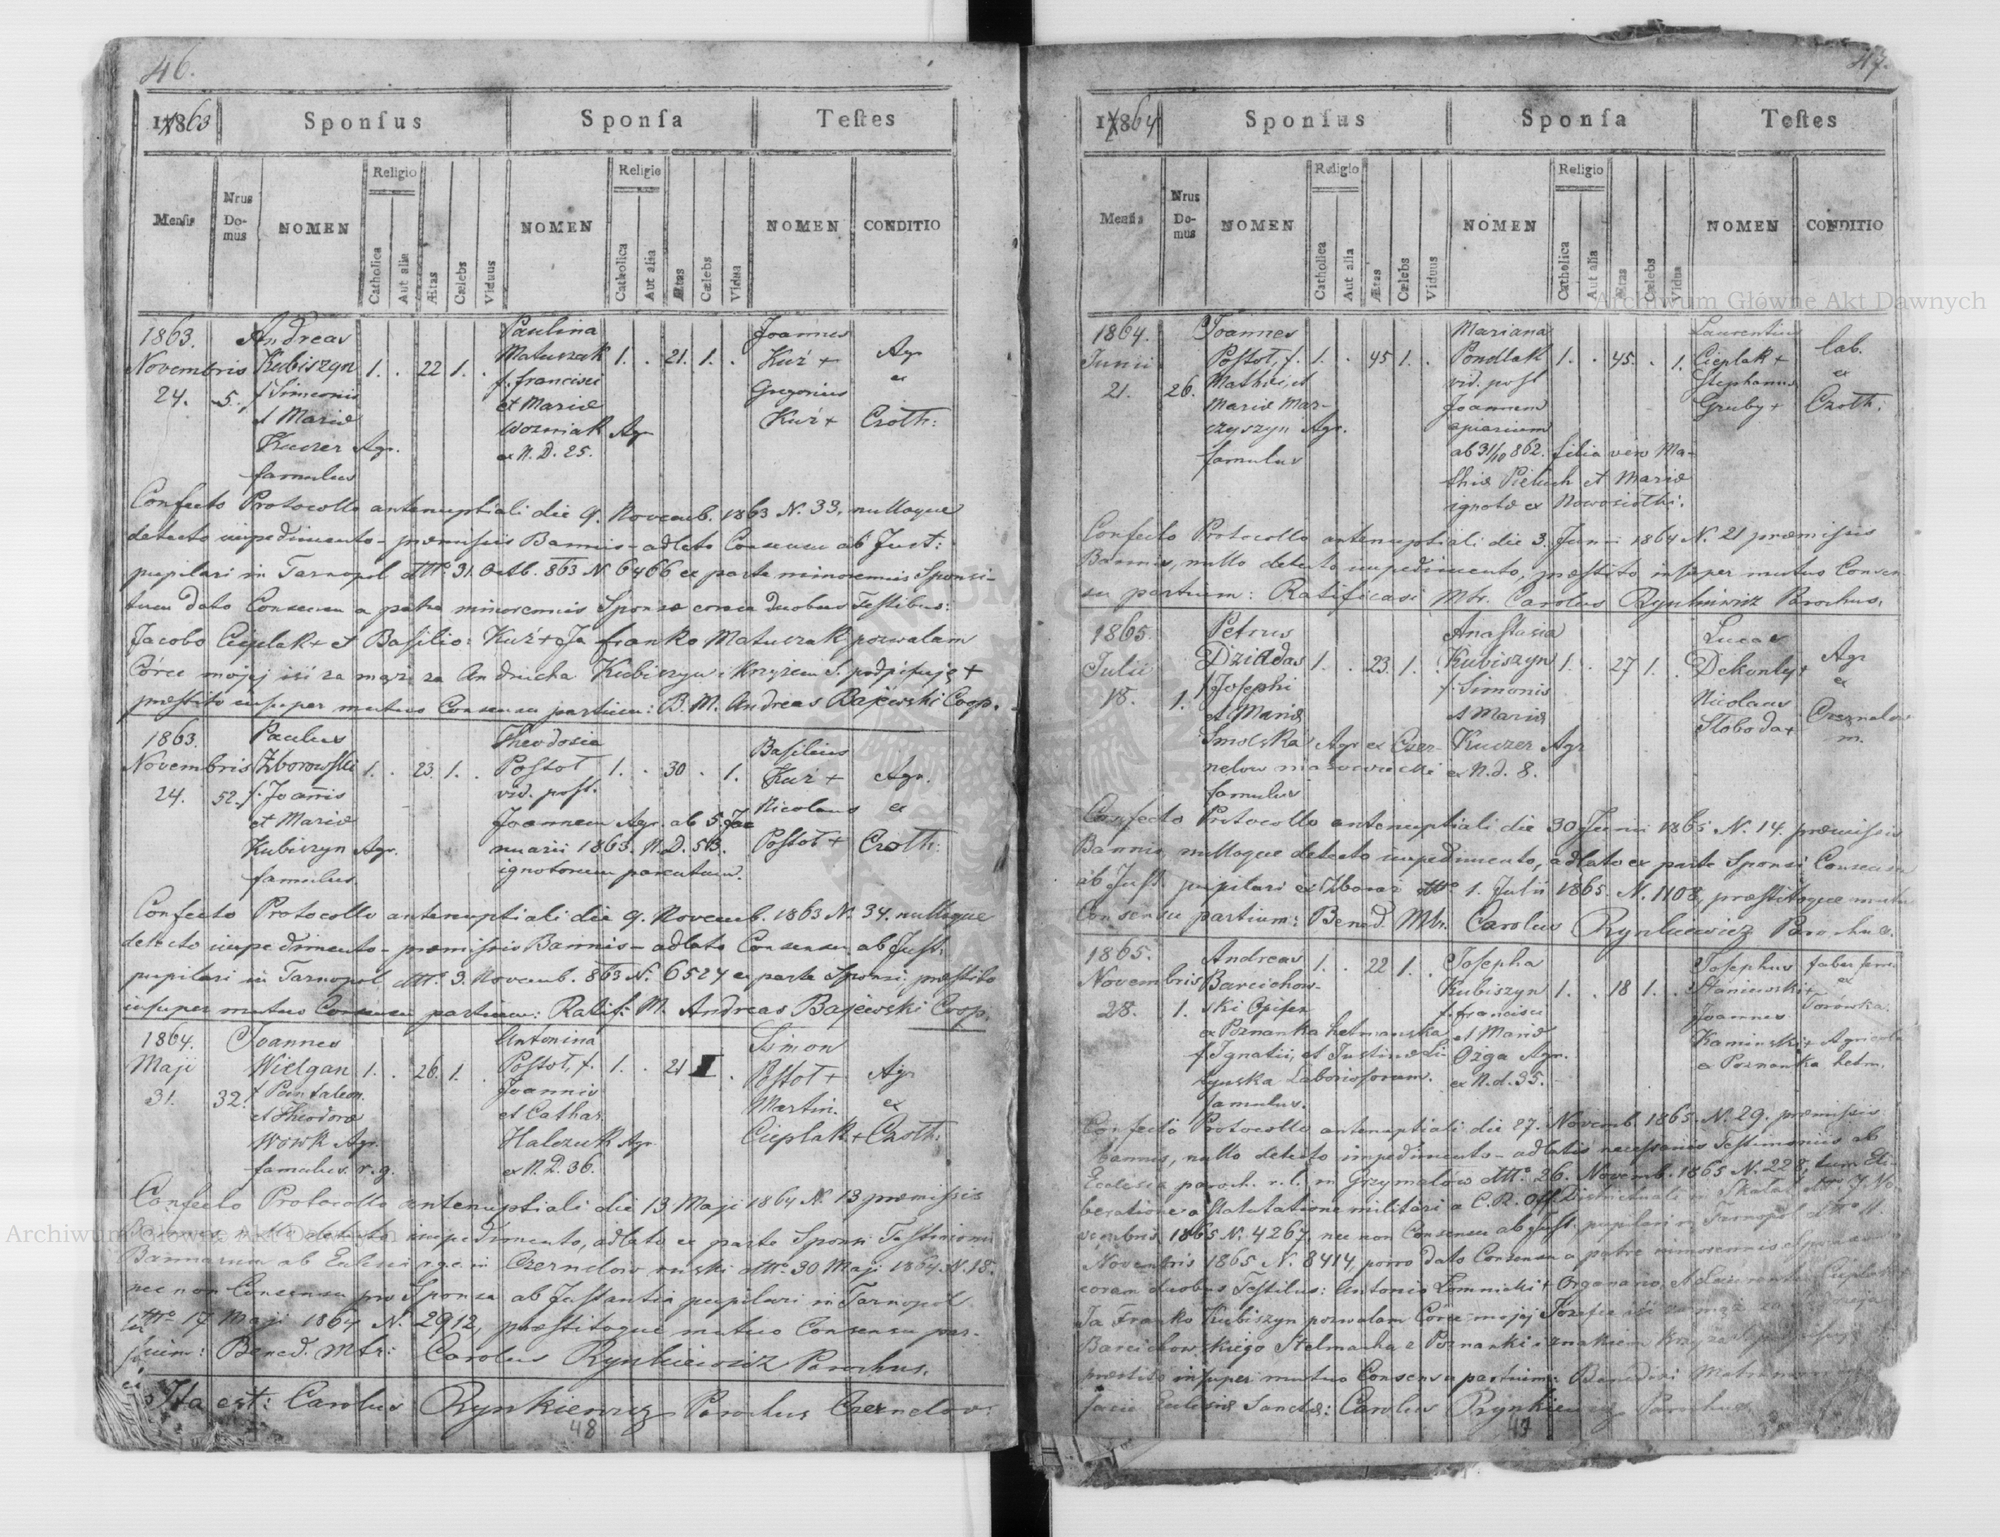 46.
1863 Sponsus Sponsa Testes
Religio Religio
Mensis Nrus Domus NOMEN Catholica Aut alia Ætas Cælebs Viduus NOMEN Catholica Aut alia Ætas Cælebs Vidua NOMEN CONDITIO
1863. Andreas Paulina Joannes
Novembris Kubiszyn 1. . 22 1. . Matuszak 1. . 21. 1. . Kuź + Agr
24. 5. f. Simeonis f. Francisci Gregorius ex
et Mariæ et Mariæ Kuź + Czoth:
Kuszer Agr. Wozniak Agr
famulus ex N. D. 25.
Confecto Protocollo antenuptiali die 9. Novemb. 1863 N. 33. nulloque
detecto impedimento – præmissis Bannis – adlato Consensu ab Just:
pupilari in Tarnopol dtto 31. Octb. 863 N. 6466 ex parte minorennis Sponsi –
tum dato Consensu a patre minorennis Sponsæ coram duobus Testibus:
Jacobo Cieplak + et Basilio: Kuź + Ja Franko Matuszak pozwalam
Córce mojej iść za mąż za Andrucha Kubiszyn i krzyżem S. podpisuję +
præstito insuper mutuo Consensu partium: B. M. Andreas Bajewski Coop.
1863. Paulus Theodosia Basilius
Novembris Zborowski 1. . 23. 1. . Postoł 1. . 30 . 1. Kuź + Agr.
24. 52. f. Joannis vid. post. Nicolaus ex
et Mariæ Joannem Agr. ab 5. Ja- Postoł + Czoth:
Kubiszyn Agr. nuarii 1863. N. D. 53.
famulus. ignotorum parentum.
Confecto Protocollo antenuptiali die 9. Novemb. 1863 N. 34. nulloque
detecto impedimento – præmissis Bannis – adlato Consensu ab Just:
pupilari in Tarnopol dtto 3. Novemb. 863 N. 6527 ex parte Sponsi: præstito
insuper mutuo Consensu partium: Ratif: M. Andreas Bajewski Coop.
1864. Joannes Antonina Simon
Maji Wielgan 1. . 26. 1. . Postoł, f. 1. . 21 1 . Postoł + Agr
31. 32. f. Pantaleon. Joannis Martin. ex
et Theodoræ et Cathar. Cieplak + Czoth:
Wowk Agr. Halczuk Agr
famulus. r. g. ex N. D. 36.
Confecto Protocollo antenuptiali die 13 Maji 1864 N. 13 præmissis
Bannis, nullo detecto impedimento, adlato ex parte Sponsi Testimonio
Bannorum ab Ecclesia r. g. in Czernelow ruski dtto 30 Maji 1864. N. 18.
nec non Consensu pro Sponsa ab Justantia pupilari in Tarnopol
dtto 17 Maji 1864 N. 2912, præstitoque mutuo Consensu par-
tium: Bened. Mtr: Carolus Rynkiewicz Parochus.
Ita est: Carolus Rynkiewicz Parochus Czernelov:
48
47.
1864 Sponsus Sponsa Testes
Religio Religio
Mensis Nrus Domus NOMEN Catholica Aut alia Ætas Cælebs Viduus NOMEN Catholica Aut alia Ætas Cælebs Vidua NOMEN CONDITIO
1864. Joannes Mariana Laurentius
Junii Postoł, f. 1. . 45 1. . Pondlak 1. . 45. . 1. Cieplak + lab.
21. 26. Mathiæ et vid. post Stephanus ex
Mariæ Mar- Joannem Gruby + Czoth:
czyszyn Agr. apiarium
famulus ab 31/10 862. filia vero Ma-
thiæ Pietuch et Mariæ
ignotæ ex Nowosiołki.
Confecto Protocollo antenuptiali die 3. Junii 1864 N. 21 præmissis
Bannis, nullo detecto impedimento, præstito insuper mutuo Consen-
su partium: Ratificavi Mtr. Carolus Rynkiewicz Parochus.
1865. Petrus Anastasia Lucas
Julii Dziadas 1. . 23. 1. . Kubiszyn 1. . 27 1. . Dekonly + Agr
18. 1. f. Josephi f. Simonis Nicolaus ex
et Mariæ et Mariæ Sloboda + Czernelow
Smolska Agr ex Czer- Kuszer Agr m.
nelow mazowiecki ex N. d. 8.
famulus
Confecto Protocollo antenuptiali die 30 Junii 1865 N. 14. præmissis
Bannis, nulloque detecto impedimento, adlato ex parte Sponsi Consensu
ab Just. pupilari ex Zbaraz dtto 1. Julii 1865. N. 1108, præstitoque mutuo
Consensu partium: Bened. Mtr. Carolus Rynkiewicz Parochus.
1865. Andreas 1. . 22 1. . Josepha Josephus faber
Novembris Barcichow- Kubiszyn 1. . 18 1. . Staniewski + ex
28. 1. ski Opifex f. Francisci Joannes Torówka
ex Poznanka hetmanska et Mariæ Kaminski + Agricola
f. Ignatii, et Justinæ Li- Oźga Agr. ex Poznanka hetm.
Laboriosorum. ex N. d. 35.
famulus.
Confecto Protocollo antenuptiali die 27. Novemb. 1865. N. 29. præmissis
bannis, nullo detecto impedimento – adlatis necessariis Testimoniis ab
Ecclesia paroch. r. l. in Grzymałów dtto 26. Novemb. 1865 N. 228, tum Li-
beratione a Statutatione militari a C. R. Off. Districtuali in Skałat dtto 7. No-
vembris 1865 N. 4267, nec non Consensu ab Just. pupilari in Tarnopol dtto 11.
Novembris 1865 N. 8414, porro dato Consensu a patre minorennis
coram duobus Testibus: Antonio Łomnicki + Organario, et Laurentio Cieplak +
Ja Franko Kubiszyn pozwalam Córce mojej Józefie iść za mąż za Andrzeja
Barcichowskiego Stelmacha z Poznanki i znakiem krzyża S. podpisuję
præstito insuper mutuo Consensu partium: Benedixi Matrimonium
facie Ecclesiæ Sanctæ: Carolus Rynkiewicz Parochus.
47
Archiwum Główne Akt Dawnych
Archiwum Główne Akt Dawnych